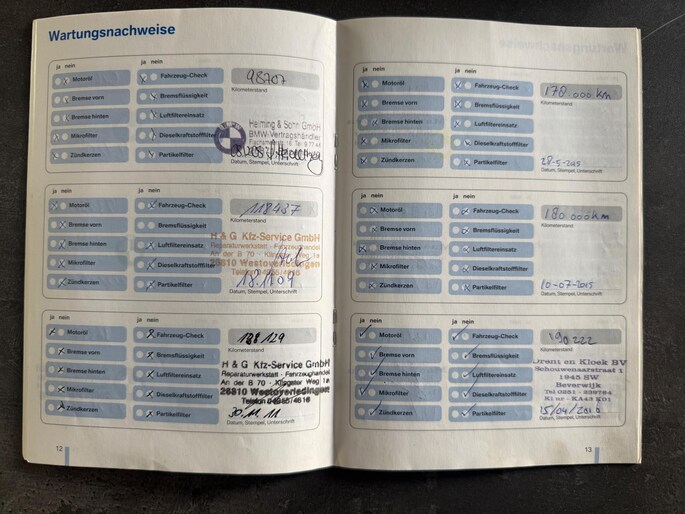 Wartungsnachweise
ja nein
ja nein
Motoröl
Fahrzeug-Check
98707
Kilometerstand
Bremse vorn
Bremsflüssigkeit
Bremse hinten
Luftfiltereinsatz
Helming & Sohn GmbH
BMW-Vertragshändler
Mikrofilter
Dieselkraftstofffilter
Zündkerzen
Partikelfilter
Datum, Stempel, Unterschrift
ja nein
ja nein
Motoröl
Fahrzeug-Check
118437
Kilometerstand
Bremse vorn
Bremsflüssigkeit
H & G Kfz-Service GmbH
Reparaturwerkstatt - Fahrzeughandel
Bremse hinten
Luftfiltereinsatz
An der B 70 - Klagster Weg 1a
26810 Westoverledingen
Mikrofilter
Dieselkraftstofffilter
Telefon 04955/4616
18.11.09
Zündkerzen
Partikelfilter
Datum, Stempel, Unterschrift
ja nein
ja nein
Motoröl
Fahrzeug-Check
129
Kilometerstand
Bremse vorn
Bremsflüssigkeit
H & G Kfz-Service GmbH
Reparaturwerkstatt - Fahrzeughandel
Bremse hinten
Luftfiltereinsatz
An der B 70 - Klagster Weg 1a
26810 Westoverledingen
Mikrofilter
Dieselkraftstofffilter
Telefon 04955/4616
30.11.11
Zündkerzen
Partikelfilter
Datum, Stempel, Unterschrift
12
ja nein
ja nein
Motoröl
Fahrzeug-Check
178.000 km
Kilometerstand
Bremse vorn
Bremsflüssigkeit
Bremse hinten
Luftfiltereinsatz
Mikrofilter
Dieselkraftstofffilter
Zündkerzen
Partikelfilter
28-5-2015
Datum, Stempel, Unterschrift
ja nein
ja nein
Motoröl
Fahrzeug-Check
180.000km
Kilometerstand
Bremse vorn
Bremsflüssigkeit
Bremse hinten
Luftfiltereinsatz
Mikrofilter
Dieselkraftstofffilter
Zündkerzen
Partikelfilter
10-07-2015
Datum, Stempel, Unterschrift
ja nein
ja nein
Motoröl
Fahrzeug-Check
190222
Kilometerstand
Bremse vorn
Bremsflüssigkeit
en Kloek BV
Schouwenaarstraat 1
Bremse hinten
Luftfiltereinsatz
1945 SW
Beverwijk
Mikrofilter
Dieselkraftstofffilter
Tel 0251 - 239784
Zündkerzen
Partikelfilter
15/04/2016
Datum, Stempel, Unterschrift
13